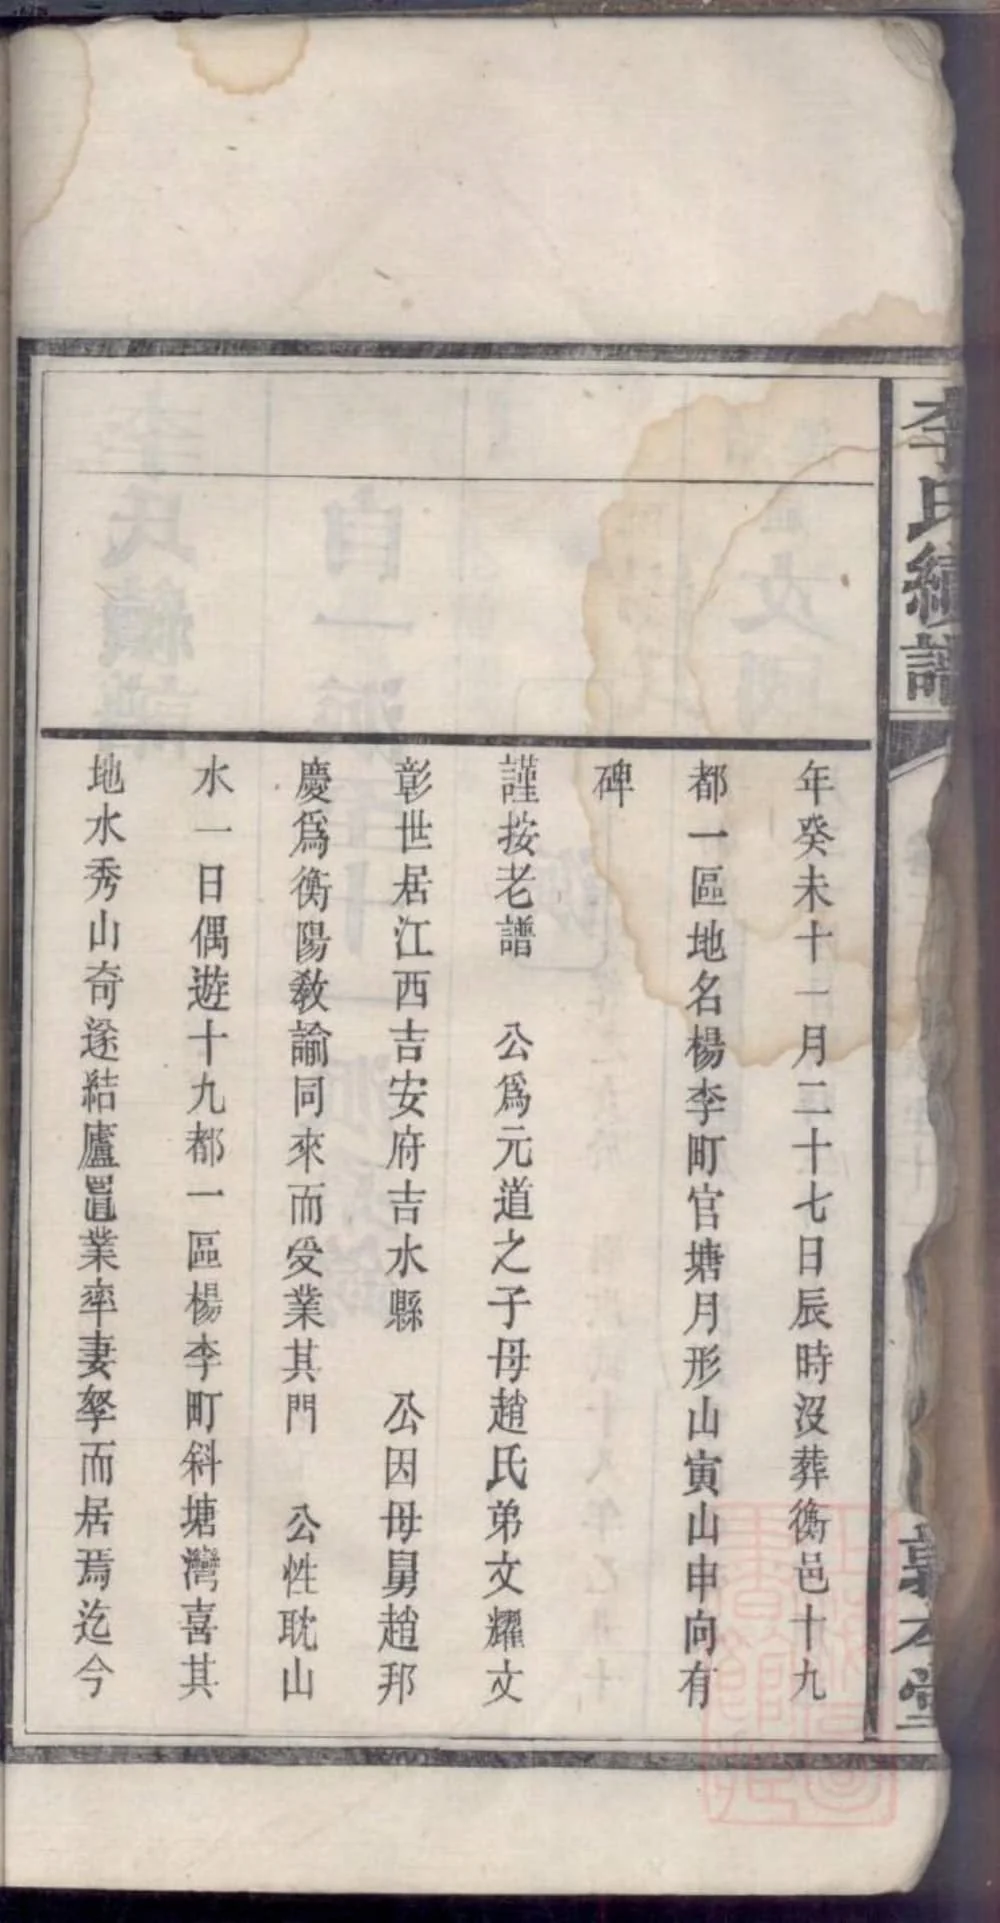 李氏續譜
敦本堂
年癸未十一月二十七日辰時沒葬衡邑十九
都一區地名楊李町官塘月形山寅山申向有
碑
謹按老譜　公爲元道之子母趙氏弟文耀文
彰世居江西吉安府吉水縣　公因母舅趙邦
慶爲衡陽敎諭同來而受業其門　公性耽山
水一日偶遊十九都一區楊李町斜塘灣喜其
地水秀山奇遂結廬置業率妻孥而居焉迄今